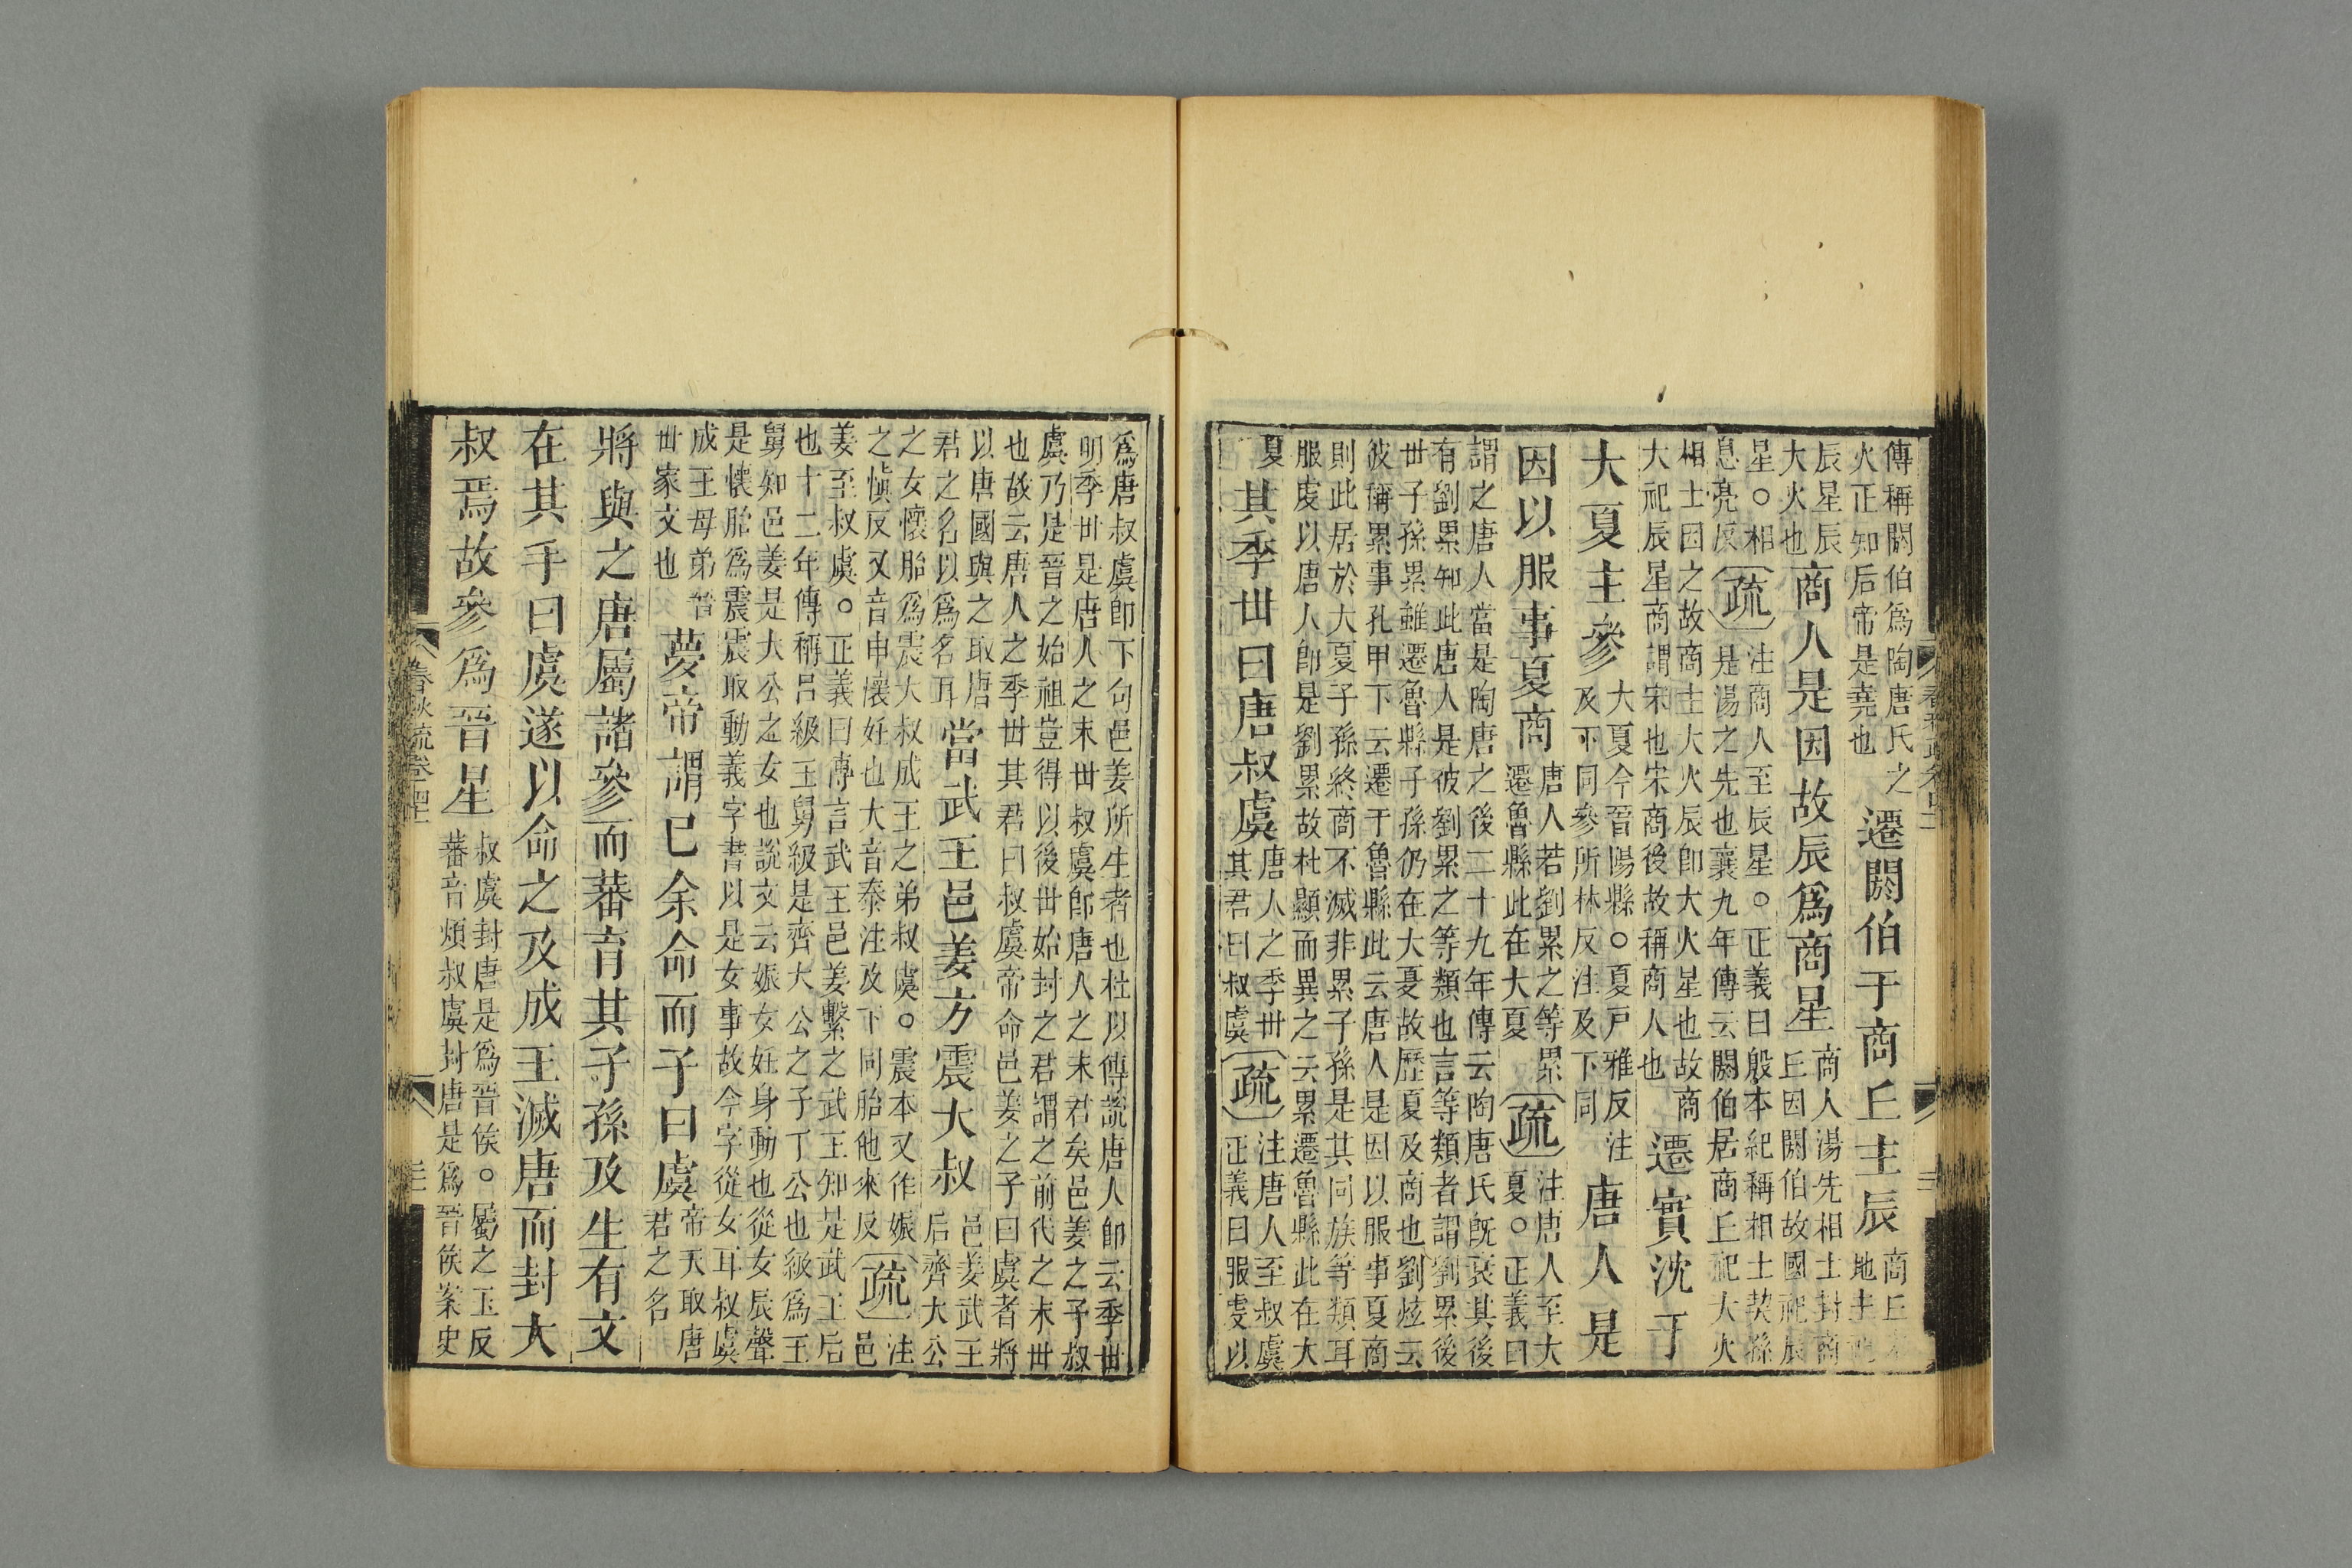 傳稱閼伯爲陶唐氏之火正知后帝是堯也遷閼伯于商丘主辰商丘地主
辰星辰大火也商人是因故辰爲商星商人湯先相土封商丘因閼伯故國祀辰
星○相息亮反疏注商人至辰星○正義曰殷本紀稱相土契孫是湯之先也襄九年傳云閼伯居商丘祀大火
相土因之故商主大火辰卽大火星也故商大祀辰星商謂宋也宋商後故稱商人也遷實沈于
大夏主參大夏今晉陽縣○夏戸雅反注及下同參所林反注及下同唐人是
因以服事夏商唐人若劉累之等累遷魯縣此在大夏疏注唐人至大夏○正義曰
謂之唐人當是陶唐之後二十九年傳云陶唐氏旣衰其後
有劉累知此唐人是彼劉累之等類也言等類者謂劉累後
丗子孫累雖遷魯縣子孫仍在大夏故歷夏及商也劉炫云
彼稱累事孔甲下云遷于魯縣此云唐人是因以服事夏商
則此居於大夏子孫終商不滅非累子孫是其同族等類耳
服虔以唐人卽是劉累故杜顯而異之云累遷魯縣此在大
夏其季丗曰唐叔虞唐人之季丗其君曰叔虞疏注唐人至叔虞正義曰服虔以
爲唐叔虞卽下句邑姜所生者也杜以傳說唐人卽云季丗
明季丗是唐人之末丗叔虞卽唐人之末君矣邑姜之子叔
虞乃是晉之始祖豈得以後丗始封之君謂之前代之末丗
也故云唐人之季丗其君曰叔虞帝命邑姜之子曰虞者將
以唐國與之取唐君之名以爲名耳當武王邑姜方震大叔邑姜武王后齊大公
之女懷胎爲震大叔成王之弟叔虞○震本又作娠之愼反又音申懷妊也大音泰注及下同胎他來反疏注邑
姜至叔虞○正義曰傳言武王邑姜繫之武王知是武王后
也十二年傳稱呂級王舅級是齊大公之子丁公也級爲王
舅知邑姜是大公之女也說文云娠女妊身動也從女辰聲
是懷胎爲震震取動義字書以是女事故今字從女耳叔虞
成王母弟晉丗家文也夢帝謂已余命而子曰虞帝天取唐君之名
將與之唐屬諸參而蕃育其子孫及生有文
在其手曰虞遂以命之及成王滅唐而封大
叔焉故參爲晉星叔虞封唐是爲晉侯○屬之玉反蕃音煩叔虞封唐是爲晉侯案史